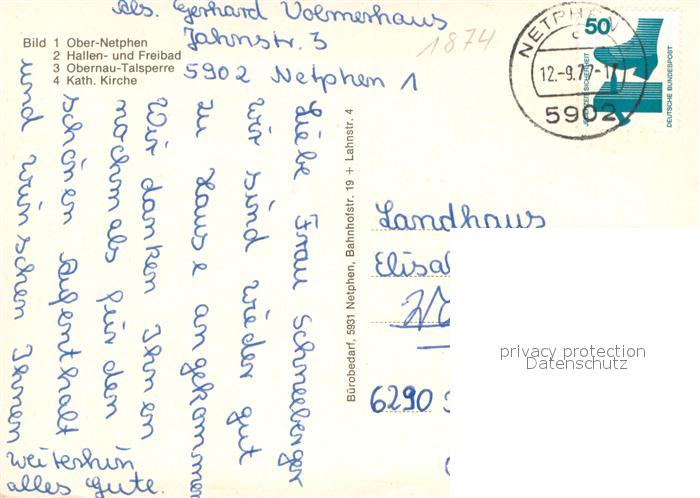 Abs. Gerhard Volmerhaus
Jahnstr. 3
5902 Netphen 1
1874
Bild 1 Ober-Netphen
2 Hallen- und Freibad
3 Obernau-Talsperre
4 Kath. Kirche
NETPHEN
c
12.-9.77-17
5902
50
JEDERZEIT SICHERHEIT
DEUTSCHE BUNDESPOST
Liebe Frau Schneeberger
wir sind wieder gut
zu Hause angekommen
Wir danken Ihnen
nochmals für den
schönen Aufenthalt
und wünschen Ihnen
weiterhin
alles Gute.
Bürobedarf, 5931 Netphen, Bahnhofstr. 19 + Lahnstr. 4
Landhaus
6290
privacy protection
Datenschutz